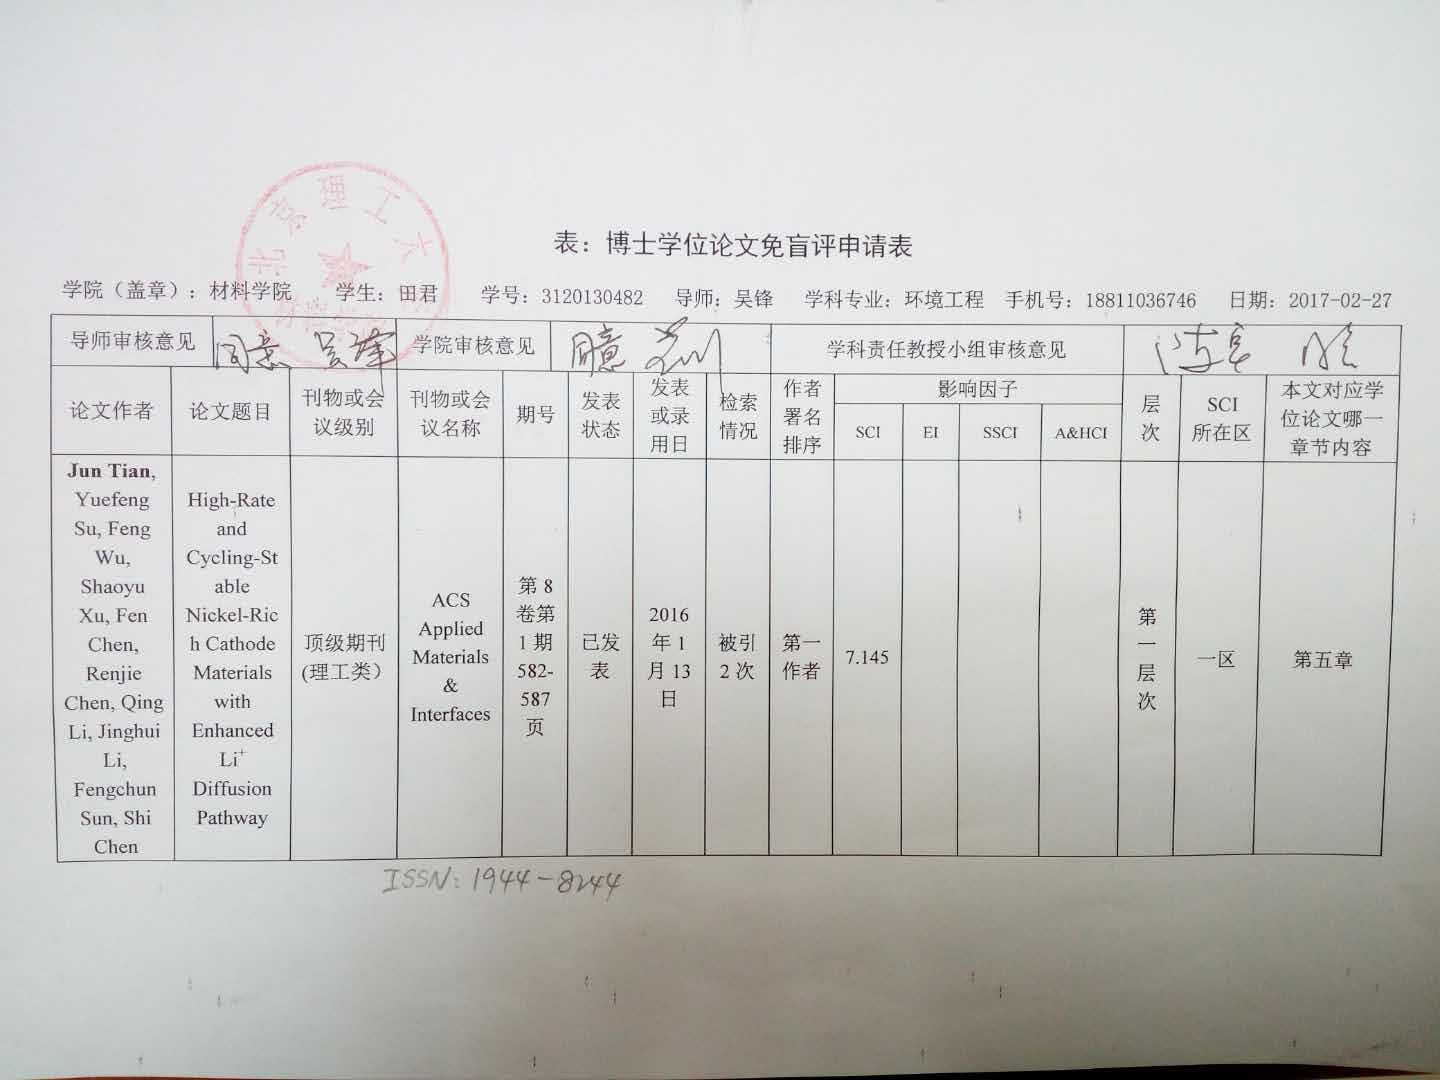 北京理工大
表：博士学位论文免盲评申请表
学院（盖章）：材料学院 学生：田君 学号：3120130482 导师：吴锋 学科专业：环境工程 手机号：18811036746 日期：2017-02-27
导师审核意见 同意 吴锋 学院审核意见 同意 学科责任教授小组审核意见
论文作者
论文题目
刊物或会
议级别
刊物或会
议名称
期号
发表
状态
发表
或录
用日
检索
情况
作者
署名
排序
影响因子
SCI EI SSCI A&HCI
层
次
SCI
所在区
本文对应学
位论文哪一
章节内容
Jun Tian,
Yuefeng
Su, Feng
Wu,
Shaoyu
Xu, Fen
Chen,
Renjie
Chen, Qing
Li, Jinghui
Li,
Fengchun
Sun, Shi
Chen
High-Rate
and
Cycling-St
able
Nickel-Ric
h Cathode
Materials
with
Enhanced
Li⁺
Diffusion
Pathway
顶级期刊
(理工类）
ACS
Applied
Materials
&
Interfaces
第 8
卷第
1 期
582-
587
页
已发
表
2016
年 1
月 13
日
被引
2 次
第一
作者
7.145
第
一
层
次
一区
第五章
ISSN: 1944-8244